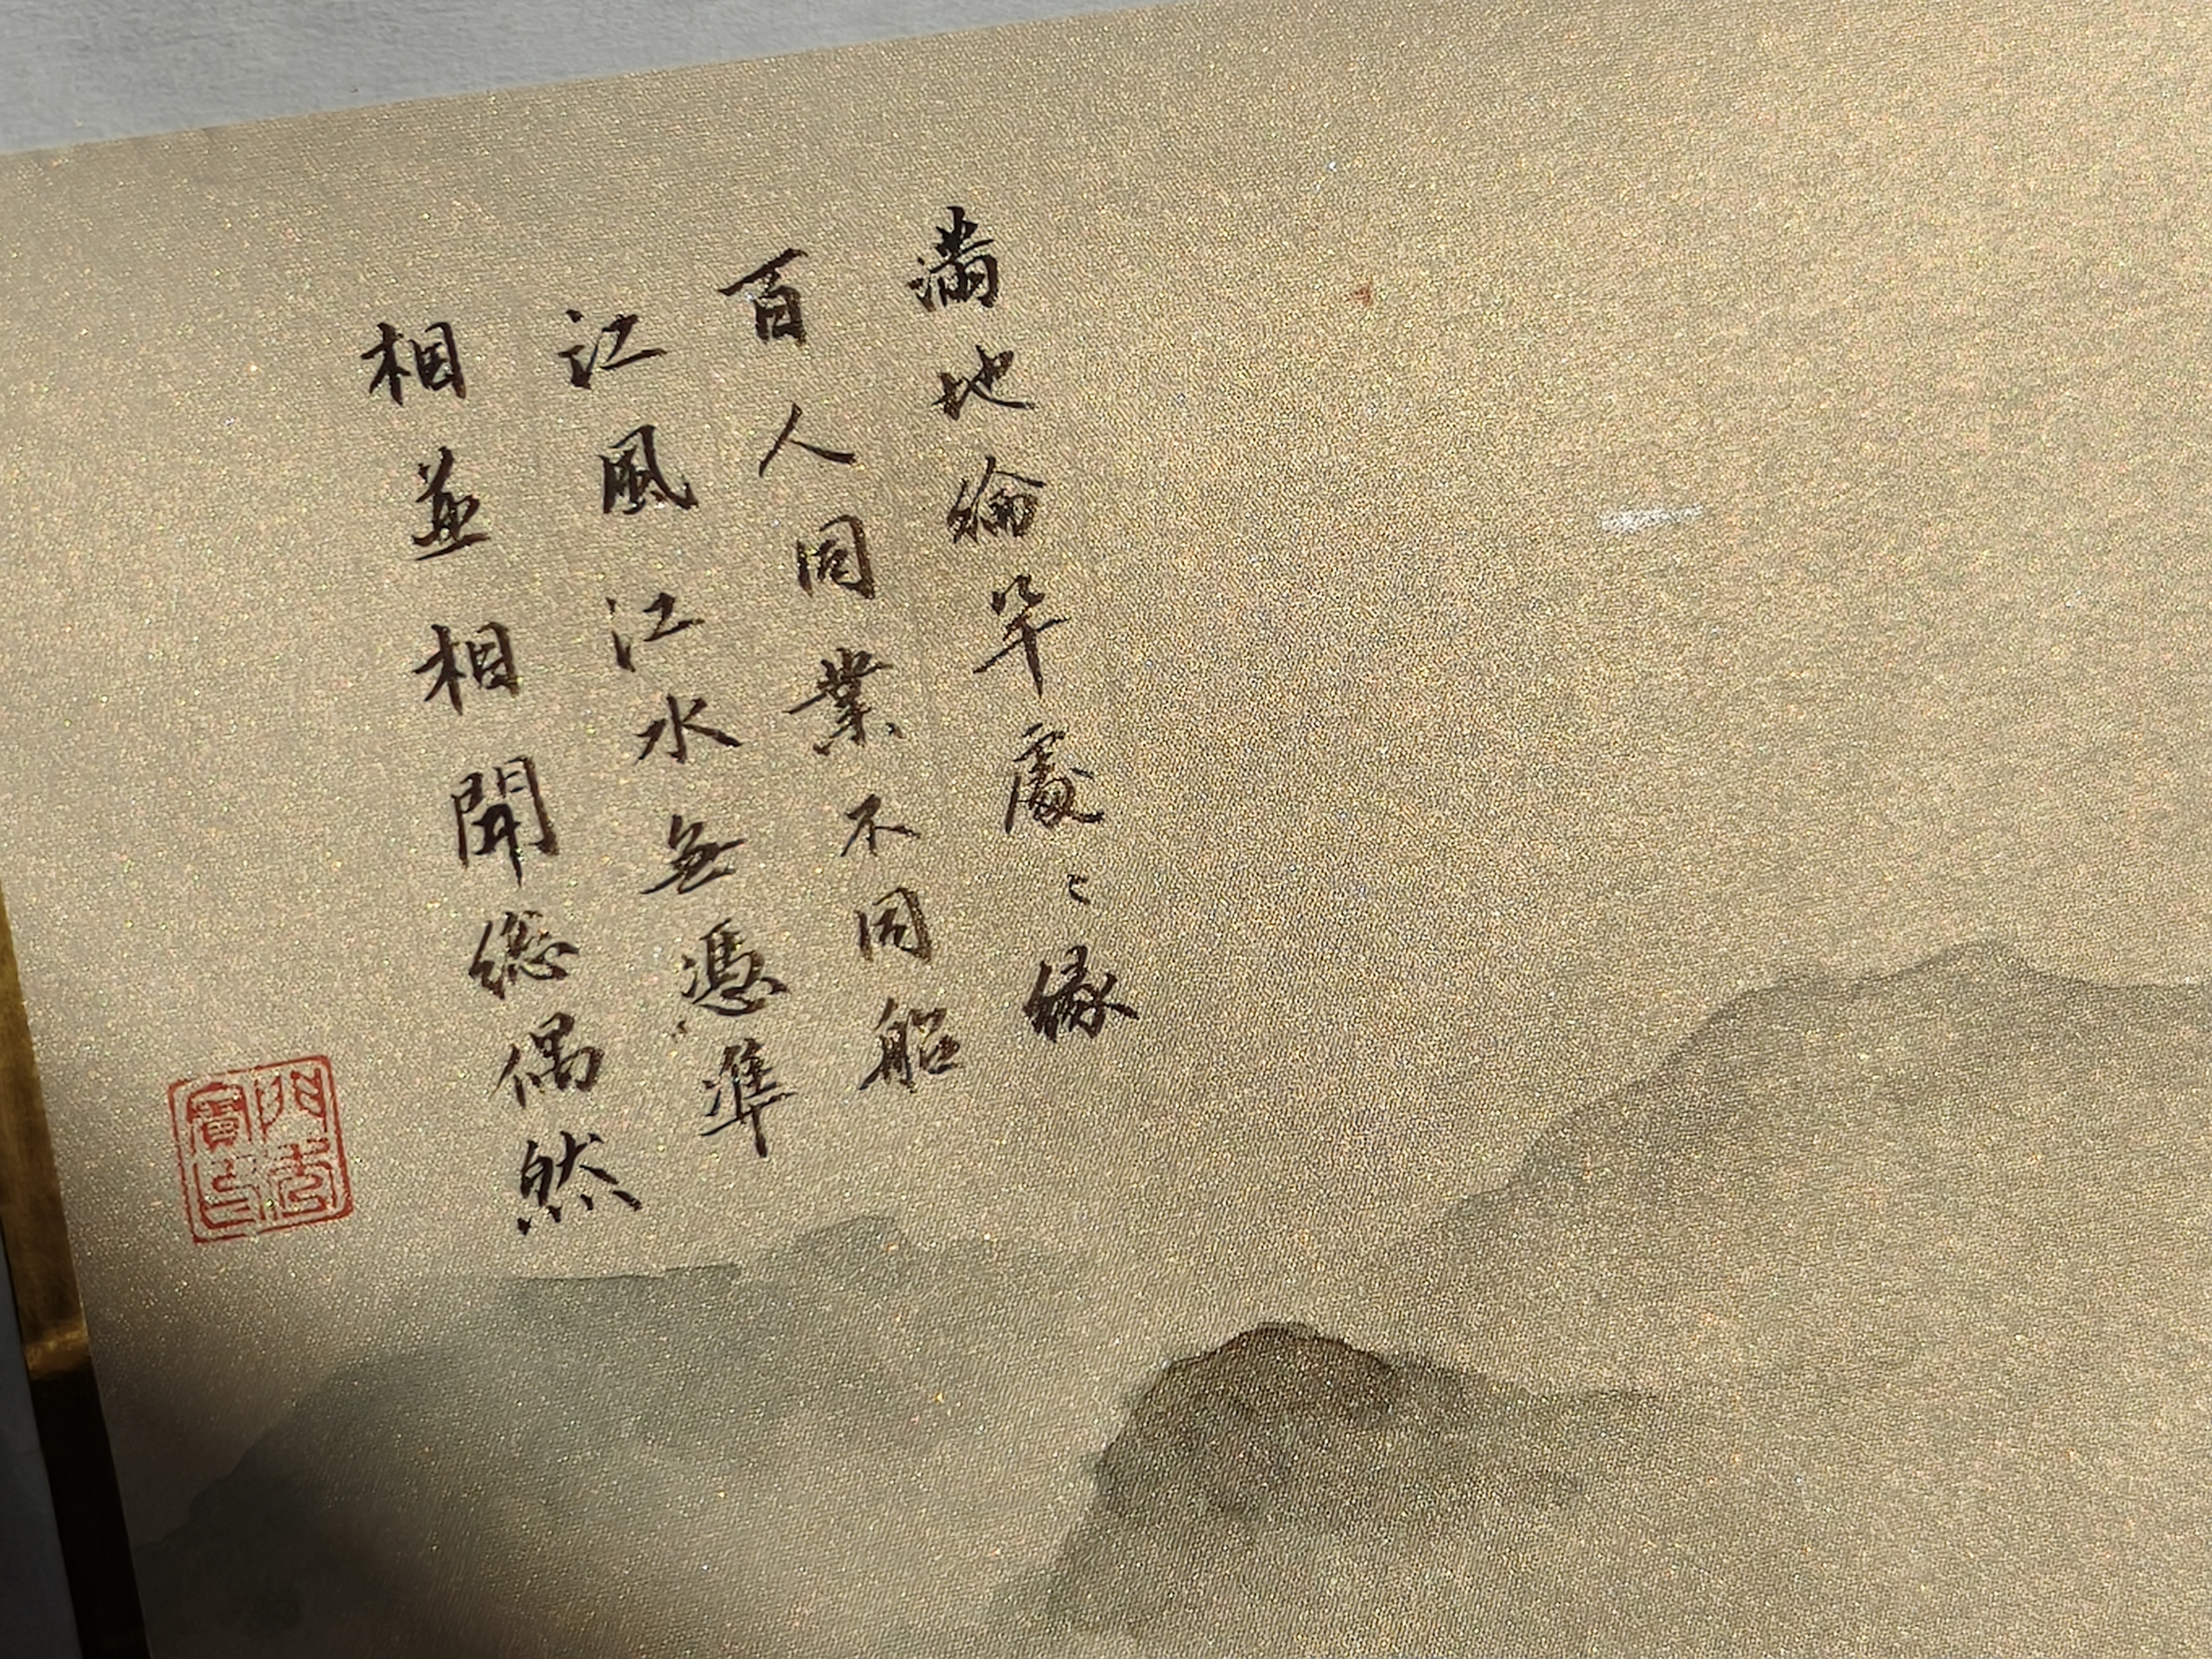 滿地綸竿處〻緣
百人同業不同船
江風江水無憑準
相並相聞總偶然